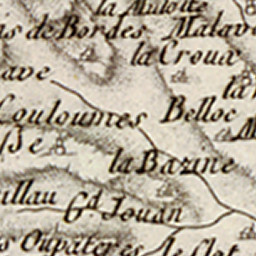 la Mulotte
is de Bordes Malave
la Croux
ave
Couloumes Belloc
la Bazine
ullau Gd. Jouan
s Oupateres le Clot